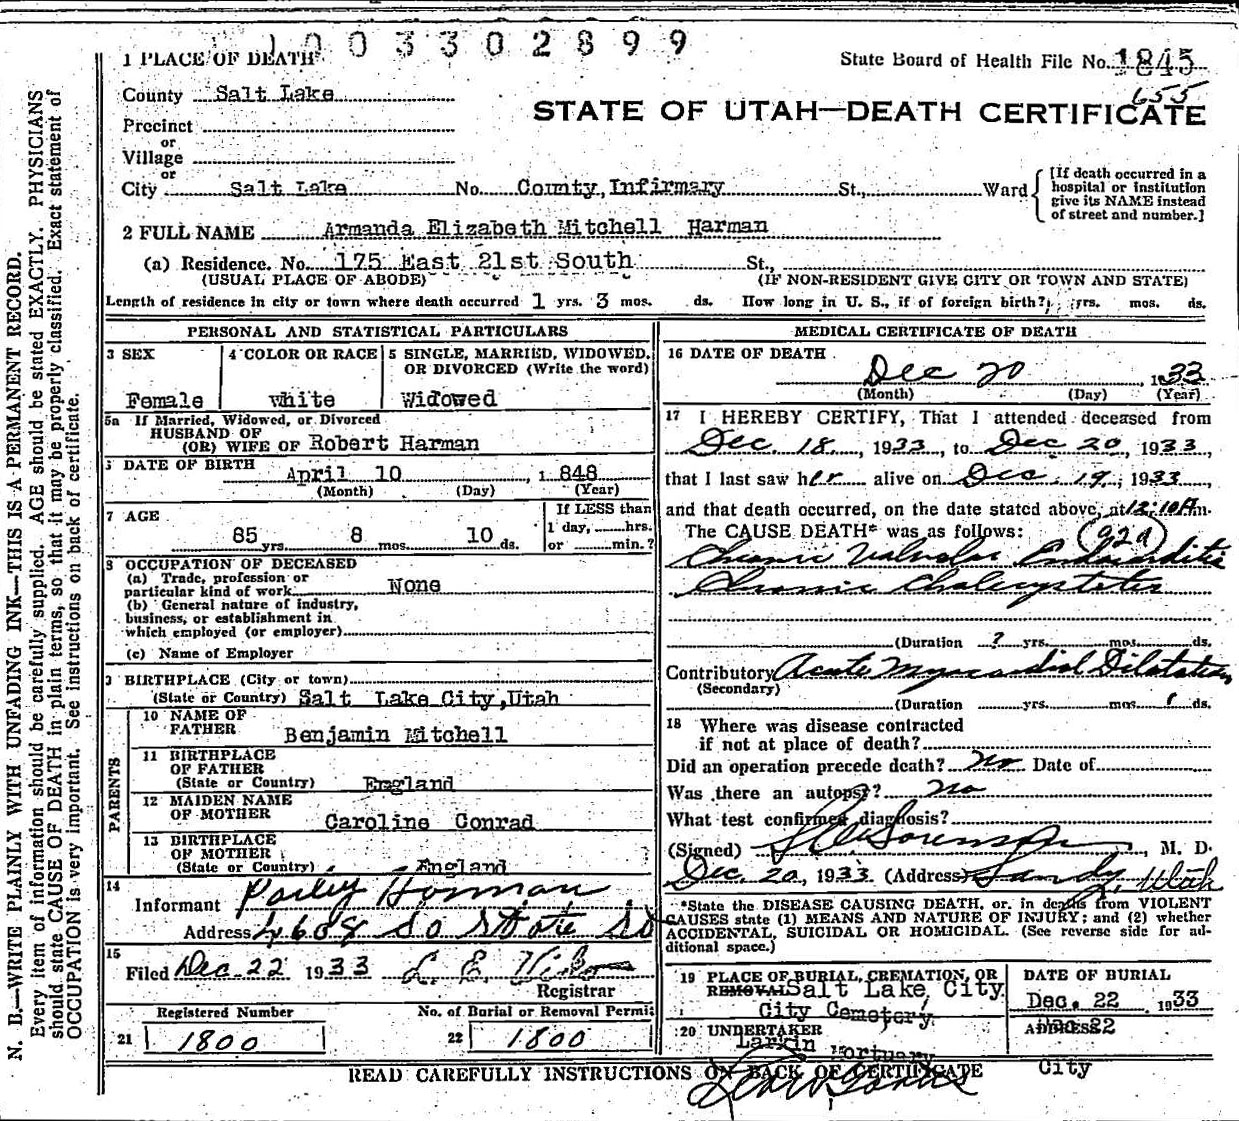 1003302899
1 PLACE OF DEATH
State Board of Health File No. 1845
655
County Salt Lake
STATE OF UTAH—DEATH CERTIFICATE
Precinct
or
Village
or
City Salt Lake No. County Infirmary St., Ward
[If death occurred in a
hospital or institution
give its NAME instead
of street and number.]
2 FULL NAME Armanda Elizabeth Mitchell Harman
(a) Residence. No. 175 East 21st South St.,
(USUAL PLACE OF ABODE) (IF NON-RESIDENT GIVE CITY OR TOWN AND STATE)
Length of residence in city or town where death occurred 1 yrs. 3 mos. ds. How long in U. S., if of foreign birth? yrs. mos. ds.
PERSONAL AND STATISTICAL PARTICULARS
3 SEX
Female
4 COLOR OR RACE
white
5 SINGLE, MARRIED, WIDOWED,
OR DIVORCED (Write the word)
Widowed
5a If Married, Widowed, or Divorced
HUSBAND OF
(OR) WIFE OF Robert Harman
DATE OF BIRTH
April 10, 1848
(Month) (Day) (Year)
7 AGE
85 yrs. 8 mos. 10 ds.
If LESS than
1 day, hrs.
or min.?
8 OCCUPATION OF DECEASED
(a) Trade, profession or
particular kind of work None
(b) General nature of industry,
business, or establishment in
which employed (or employer)
(c) Name of Employer
BIRTHPLACE (City or town)
(State or Country) Salt Lake City, Utah
PARENTS
10 NAME OF
FATHER Benjamin Mitchell
11 BIRTHPLACE
OF FATHER
(State or Country) England
12 MAIDEN NAME
OF MOTHER Caroline Conrad
13 BIRTHPLACE
OF MOTHER
(State or Country) England
14
Informant Parley Harman
Address 4608 So State St
15
Filed Dec. 22 1933 L. E.
Registrar
Registered Number
21 1800
No. of Burial or Removal Permit
22 1800
MEDICAL CERTIFICATE OF DEATH
16 DATE OF DEATH
Dec 20, 1933
(Month) (Day) (Year)
17 I HEREBY CERTIFY, That I attended deceased from
Dec. 18, 1933, to Dec 20, 1933,
that I last saw her alive on Dec. 19, 1933,
and that death occurred, on the date stated above, at 12:10 A m.
The CAUSE DEATH* was as follows: 92a
Chronic Valvular Endocarditis
Chronic Cholecystetes
(Duration ? yrs. mos. ds.
Contributory Acute Myocardial Dilatation
(Secondary)
(Duration yrs. mos. 1 ds.
18 Where was disease contracted
if not at place of death?
Did an operation precede death? no Date of
Was there an autopsy? no
What test confirmed diagnosis?
(Signed) Sorenson, M. D.
Dec. 20, 1933. (Address) Sandy, Utah
*State the DISEASE CAUSING DEATH, or, in deaths from VIOLENT
CAUSES state (1) MEANS AND NATURE OF INJURY; and (2) whether
ACCIDENTAL, SUICIDAL OR HOMICIDAL. (See reverse side for ad-
ditional space.)
19 PLACE OF BURIAL, CREMATION, OR
REMOVAL Salt Lake City
City Cemetery
DATE OF BURIAL
Dec. 22 1933
20 UNDERTAKER
Larkin Mortuary
ADDRESS
City
READ CAREFULLY INSTRUCTIONS ON BACK OF CERTIFICATE
N. B.—WRITE PLAINLY WITH UNFADING INK—THIS IS A PERMANENT RECORD.
Every item of information should be carefully supplied. AGE should be stated EXACTLY. PHYSICIANS
should state CAUSE OF DEATH in plain terms, so that it may be properly classified. Exact statement of
OCCUPATION is very important. See instructions on back of certificate.